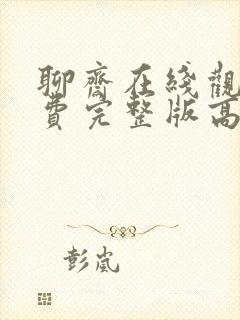 聊齋在綫觀
費完整版高
彭嵐